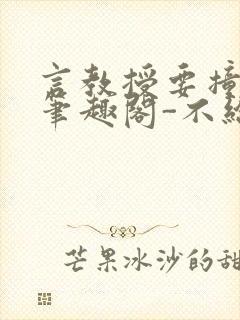 言教授要撞
笔趣阁-不纟
芒果冰沙的甜